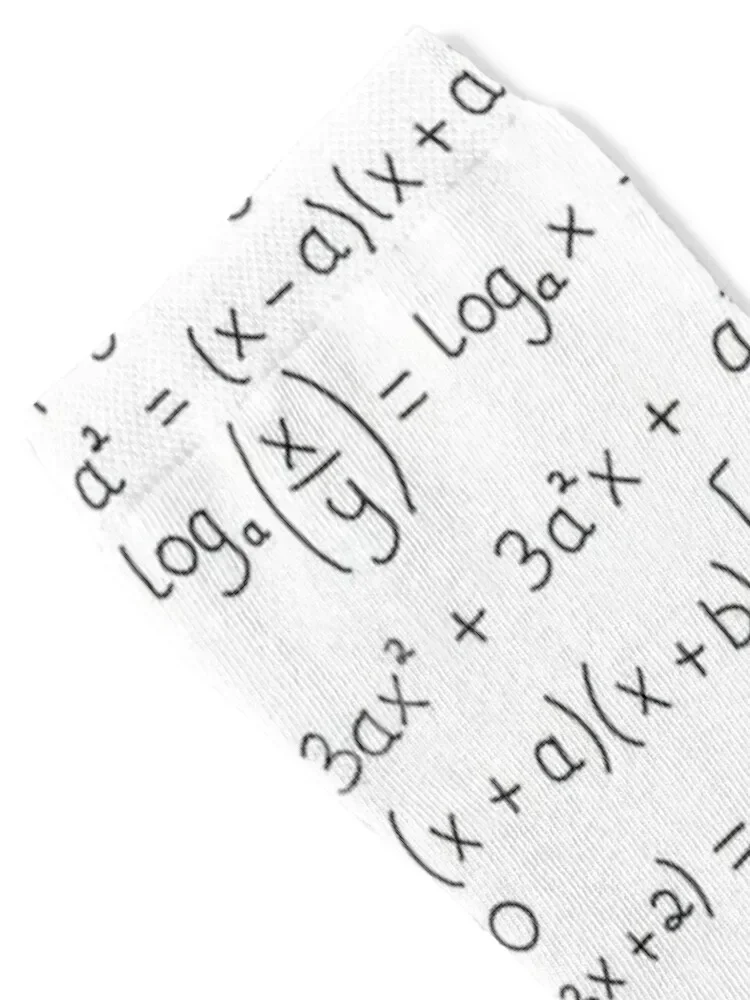 a² = (x - a)(x + a
logₐ(x/y) = logₐ x
3ax² + 3a²x + a
(x + a)(x + b)
0
3x + 2) =